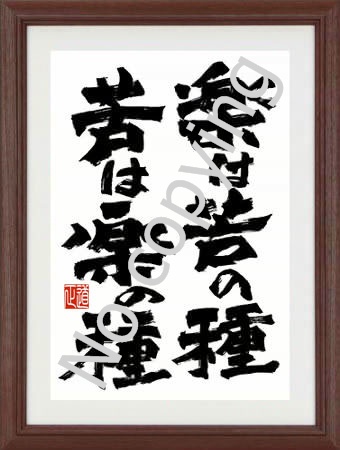 楽は苦の種
苦は楽の種
道正
No copying